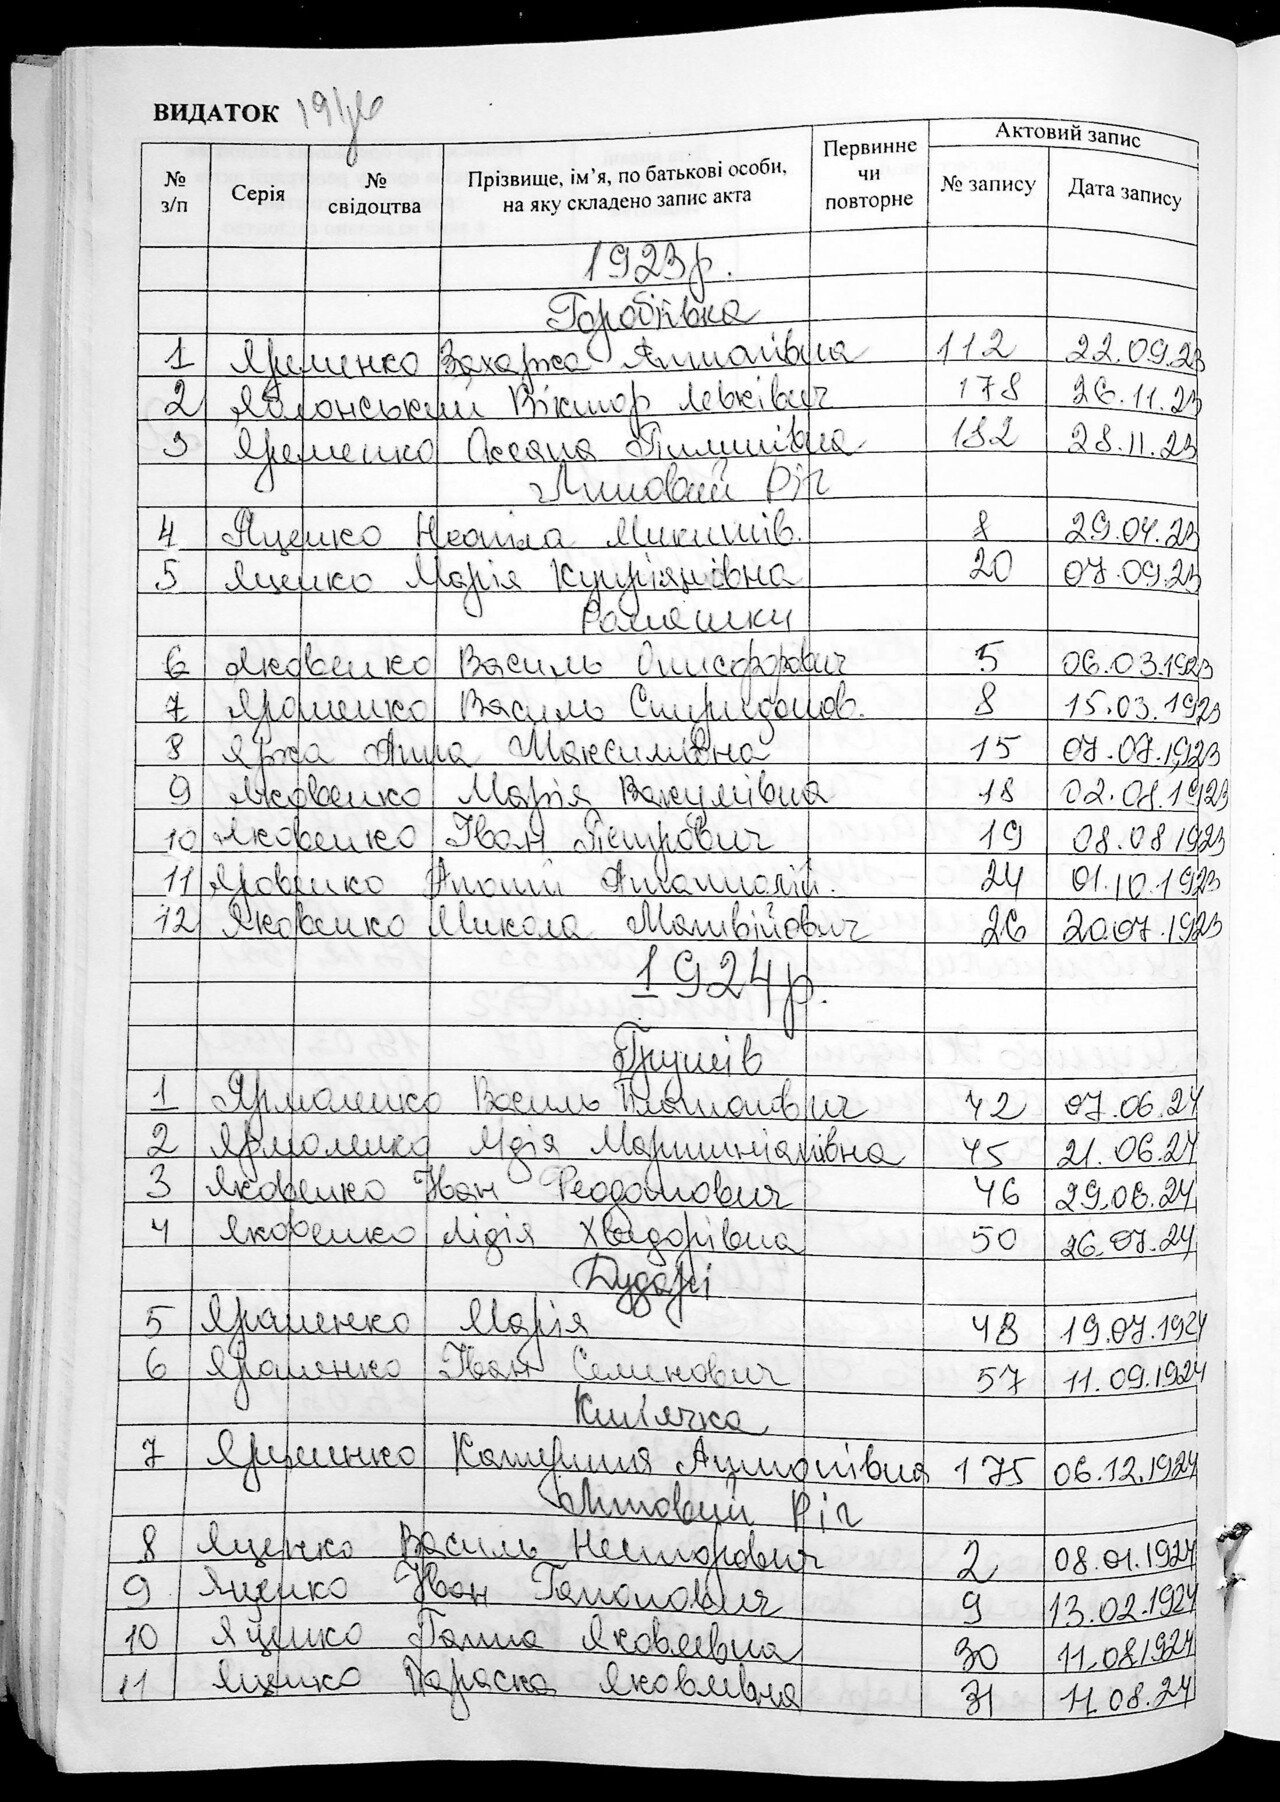 ВИДАТОК
Актовий запис
№ з/п Серія № свідоцтва Прізвище, ім’я, по батькові особи, на яку складено запис акта Первинне чи повторне № запису Дата запису
1923р.
Горобіївка
1 Яременко 112 22.09.23
2 Яблонський Віктор Левківич 178 26.11.23
3 Яременко Оксана Тимишівна 182 28.11.23
Липовий Ріг
4 Яценко Неоніла Микитів. 8 29.04.23
5 Яценко Марія Купріянівна 20 07.09.23
Ромашки
6 Яковенко Василь Онисфорович 5 06.03.1923
7 Ярошенко Василь Спиридонов. 8 15.03.1923
8 Яржа Анна Максимівна 15 07.07.1923
9 Яковенко Марія Вакулівна 18 02.08.1923
10 Яковенко Іван Петрович 19 08.08.1923
11 Яровенко 24 01.10.1923
12 Яковенко Микола Матвійович 26 20.07.1923
1924р.
Грушів
1 Ярмоленко Василь Платонович 42 07.06.24
2 Ярмоленко Лідія Мартиніанівна 45 21.06.24
3 Яковенко Іван Феодотович 46 29.06.24
4 Яковенко Лідія Хведорівна 50 26.07.24
Дударі
5 Ярошенко Марія 48 19.07.1924
6 Ярошенко Іван Семенович 57 11.09.1924
Кип'ячка
7 Катерина 175 06.12.1924
Липовий Ріг
8 Яценко Василь Несторович 2 08.01.1924
9 Яценко Іван Гапонович 9 13.02.1924
10 Яценко Ганна Яковлевна 30 11.08.1924
11 Яценко Параска Яковлівна 31 11.08.24